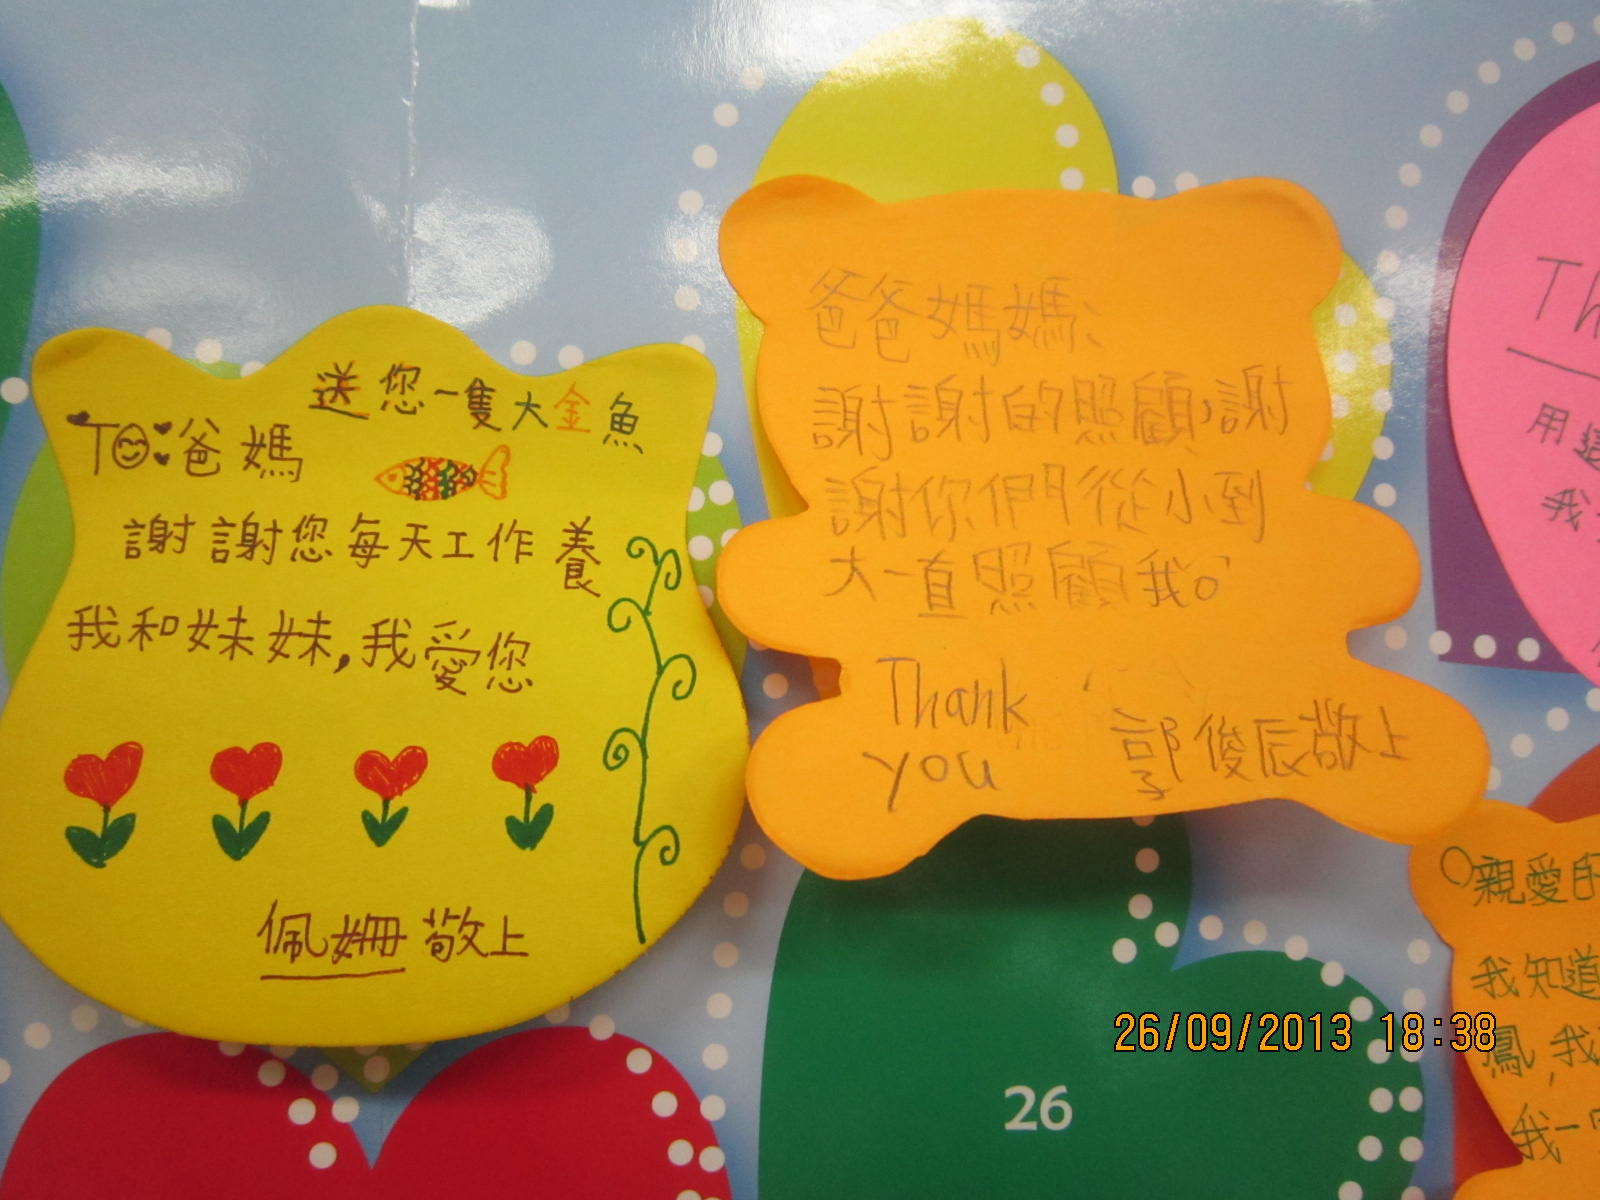 送您一隻大金魚
TO:爸媽
謝謝您每天工作養
我和妹妹,我愛您
佩姍敬上
爸爸媽媽:
謝謝的照顧,謝
謝你們從小到
大一直照顧我。
Thank
you
郭俊辰敬上
Th
用這
我
親愛的
我知道
鳳,我
我一
26/09/2013 18:38
26